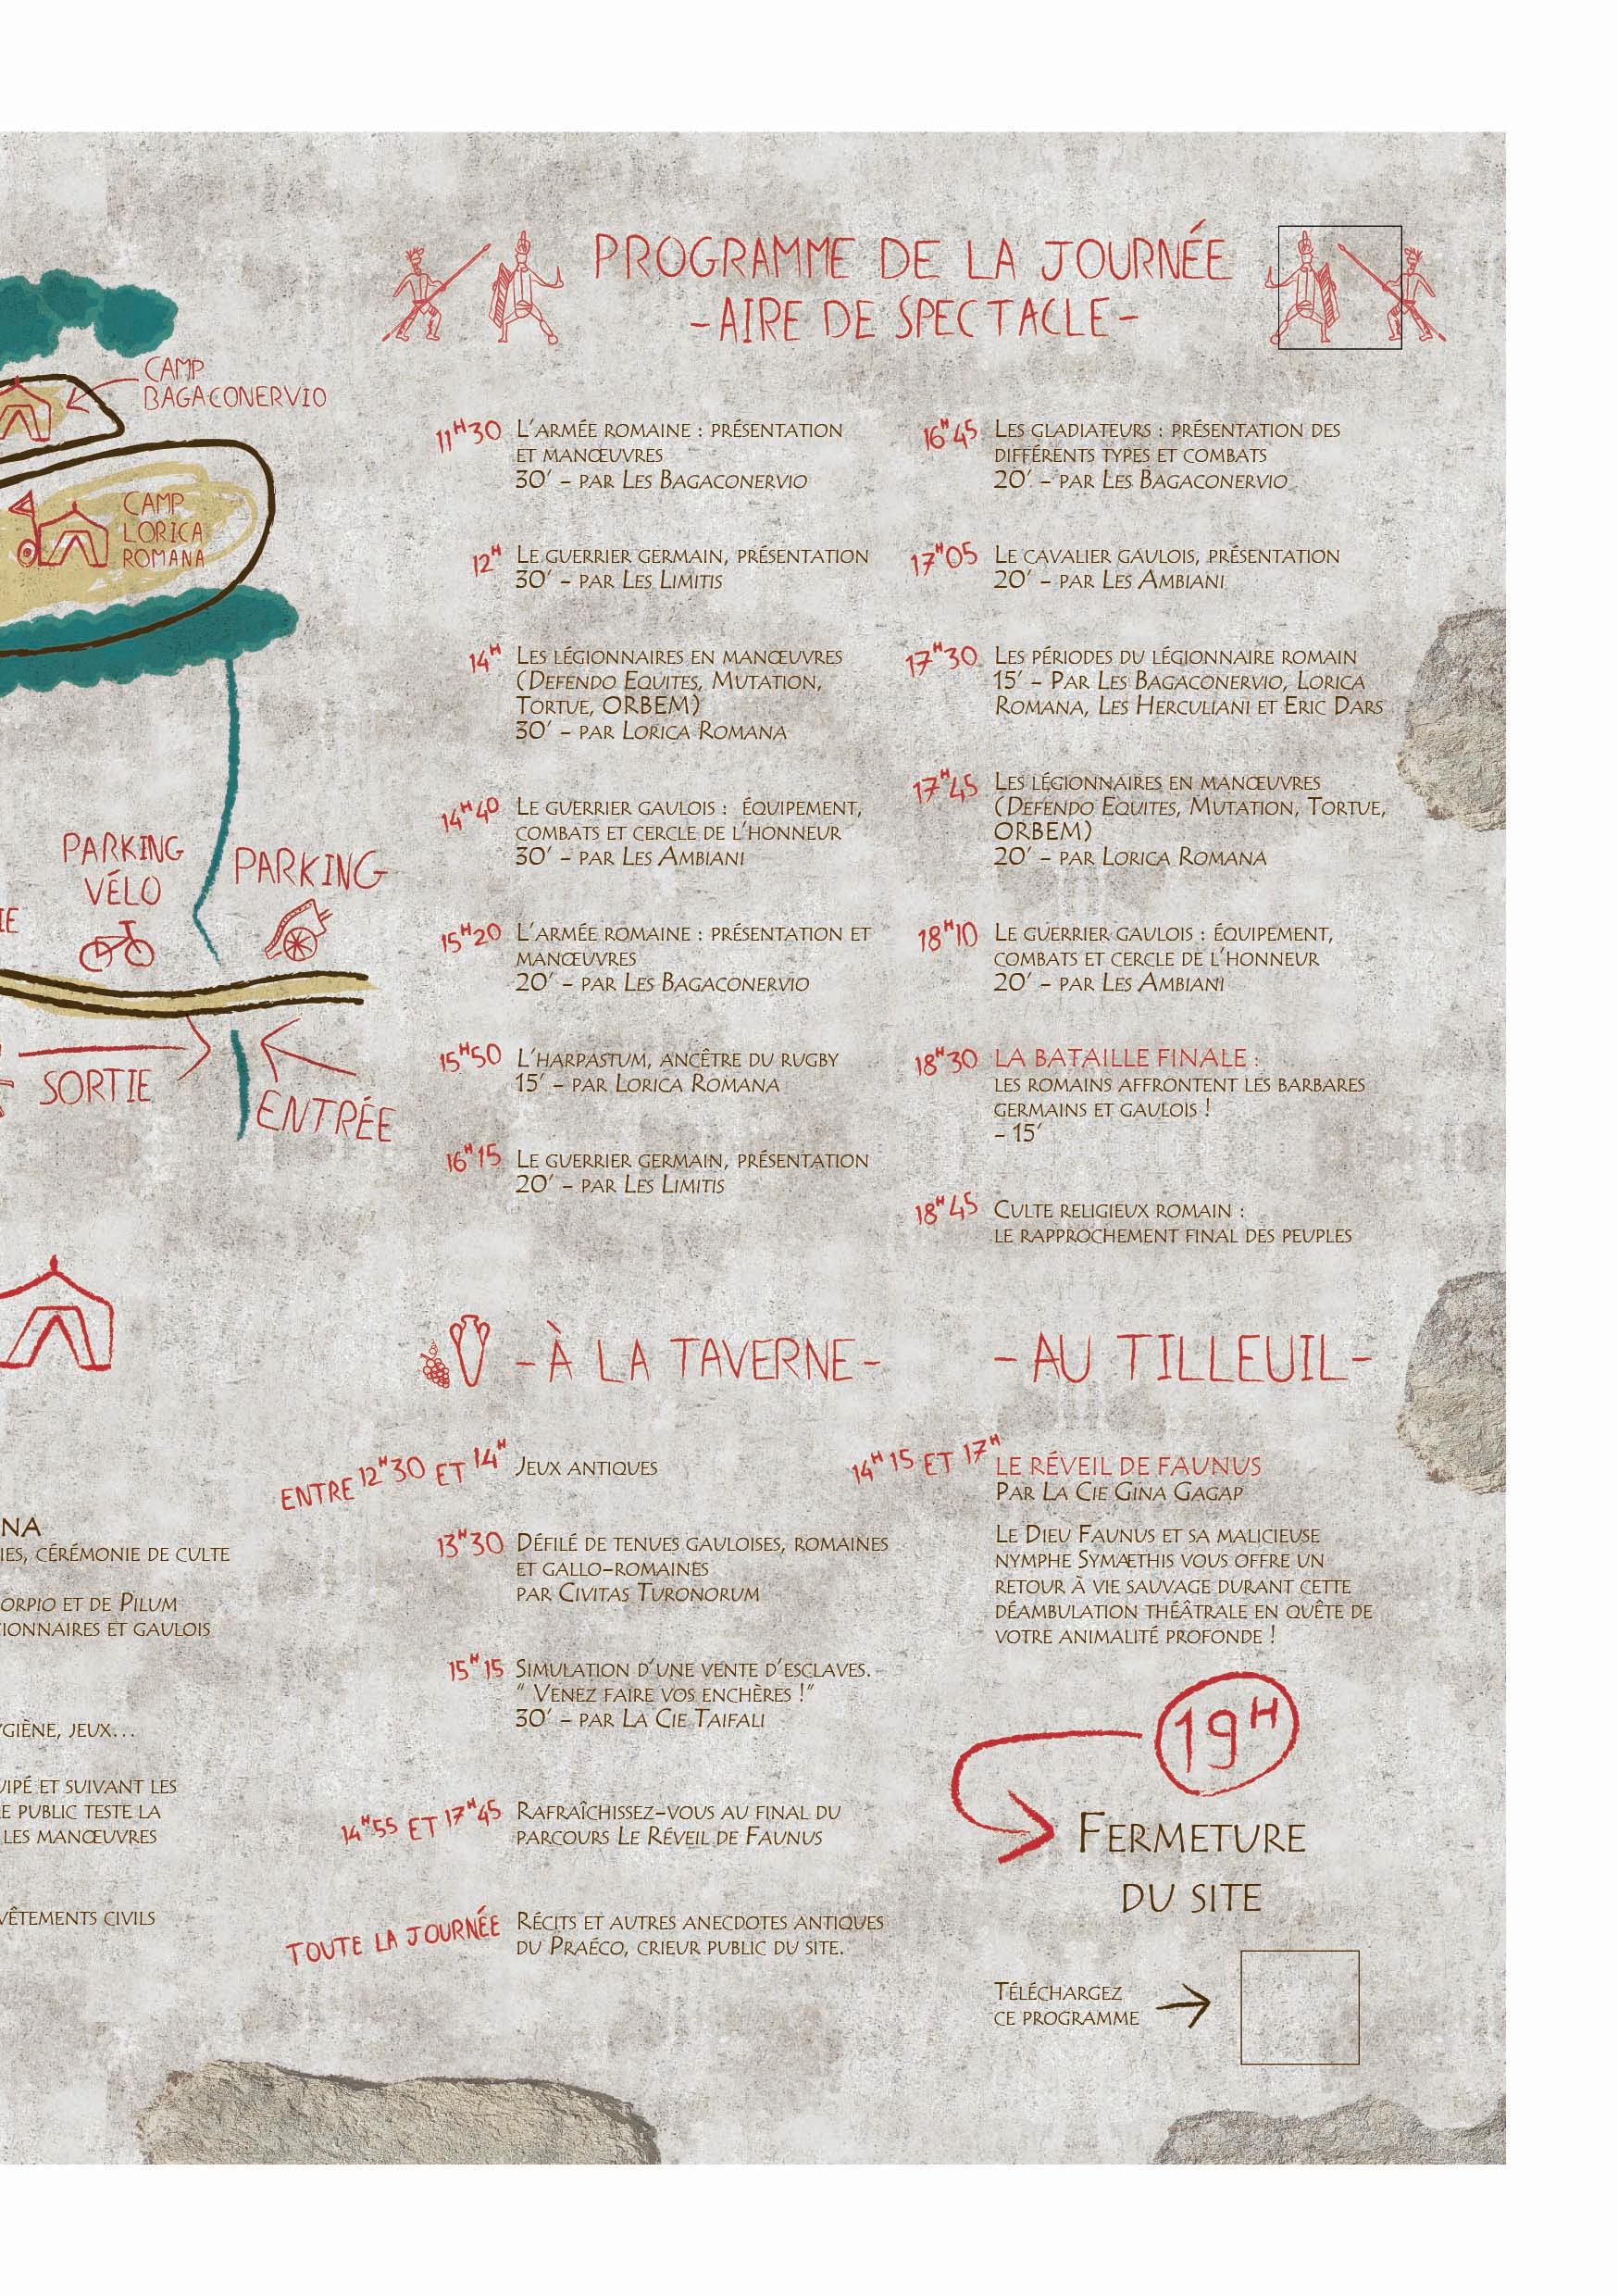 PROGRAMME DE LA JOURNÉE
-AIRE DE SPECTACLE-
CAMP
BAGACONERVIO
CAMP
LORICA
ROMANA
PARKING
VÉLO
PARKING
SORTIE
ENTRÉE
11H30 L'ARMÉE ROMAINE : PRÉSENTATION
ET MANŒUVRES
30' - PAR LES BAGACONERVIO
12H LE GUERRIER GERMAIN, PRÉSENTATION
30' - PAR LES LIMITIS
14H LES LÉGIONNAIRES EN MANŒUVRES
(DEFENDO EQUITES, MUTATION,
TORTUE, ORBEM)
30' - PAR LORICA ROMANA
14H40 LE GUERRIER GAULOIS : ÉQUIPEMENT,
COMBATS ET CERCLE DE L'HONNEUR
30' - PAR LES AMBIANI
15H20 L'ARMÉE ROMAINE : PRÉSENTATION ET
MANŒUVRES
20' - PAR LES BAGACONERVIO
15H50 L'HARPASTUM, ANCÊTRE DU RUGBY
15' - PAR LORICA ROMANA
16H15 LE GUERRIER GERMAIN, PRÉSENTATION
20' - PAR LES LIMITIS
16H45 LES GLADIATEURS : PRÉSENTATION DES
DIFFÉRENTS TYPES ET COMBATS
20' - PAR LES BAGACONERVIO
17H05 LE CAVALIER GAULOIS, PRÉSENTATION
20' - PAR LES AMBIANI
17H30 LES PÉRIODES DU LÉGIONNAIRE ROMAIN
15' - PAR LES BAGACONERVIO, LORICA
ROMANA, LES HERCULIANI ET ERIC DARS
17H45 LES LÉGIONNAIRES EN MANŒUVRES
(DEFENDO EQUITES, MUTATION, TORTUE,
ORBEM)
20' - PAR LORICA ROMANA
18H10 LE GUERRIER GAULOIS : ÉQUIPEMENT,
COMBATS ET CERCLE DE L'HONNEUR
20' - PAR LES AMBIANI
18H30 LA BATAILLE FINALE :
LES ROMAINS AFFRONTENT LES BARBARES
GERMAINS ET GAULOIS !
- 15'
18H45 CULTE RELIGIEUX ROMAIN :
LE RAPPROCHEMENT FINAL DES PEUPLES
-À LA TAVERNE-
ENTRE 12H30 ET 14H JEUX ANTIQUES
13H30 DÉFILÉ DE TENUES GAULOISES, ROMAINES
ET GALLO-ROMAINES
PAR CIVITAS TURONORUM
15H15 SIMULATION D'UNE VENTE D'ESCLAVES.
" VENEZ FAIRE VOS ENCHÈRES !"
30' - PAR LA CIE TAIFALI
14H55 ET 17H45 RAFRAÎCHISSEZ-VOUS AU FINAL DU
PARCOURS LE RÉVEIL DE FAUNUS
TOUTE LA JOURNÉE RÉCITS ET AUTRES ANECDOTES ANTIQUES
DU PRAÉCO, CRIEUR PUBLIC DU SITE.
-AU TILLEUIL-
14H15 ET 17H LE RÉVEIL DE FAUNUS
PAR LA CIE GINA GAGAP
LE DIEU FAUNUS ET SA MALICIEUSE
NYMPHE SYMÆTHIS VOUS OFFRE UN
RETOUR À VIE SAUVAGE DURANT CETTE
DÉAMBULATION THÉÂTRALE EN QUÊTE DE
VOTRE ANIMALITÉ PROFONDE !
19H
FERMETURE
DU SITE
TÉLÉCHARGEZ
CE PROGRAMME
CÉRÉMONIE DE CULTE
ET DE PILUM
ET GAULOIS
JEUX...
ET SUIVANT LES
PUBLIC TESTE LA
LES MANŒUVRES
VÊTEMENTS CIVILS